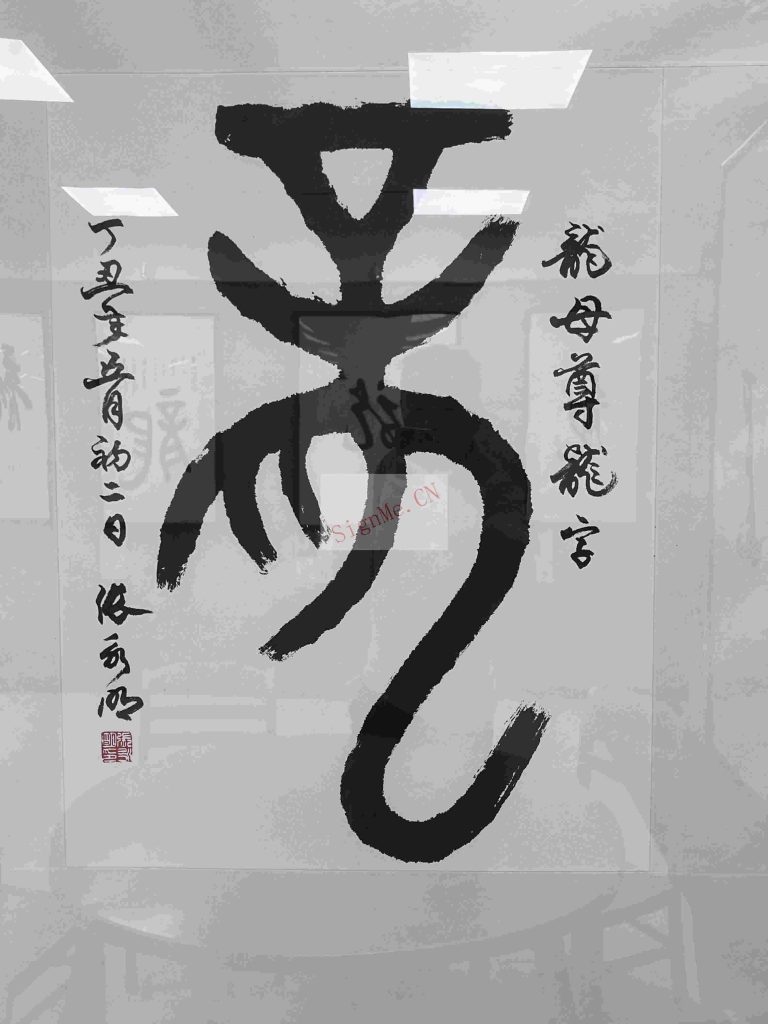 龍母尊龍字
龍
丁丑年五月初二日 張永明
SignMe.CN